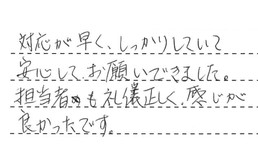 対応が早く、しっかりしていて
安心して、お願いできました。
担当者も礼儀正しく、感じが
良かったです。